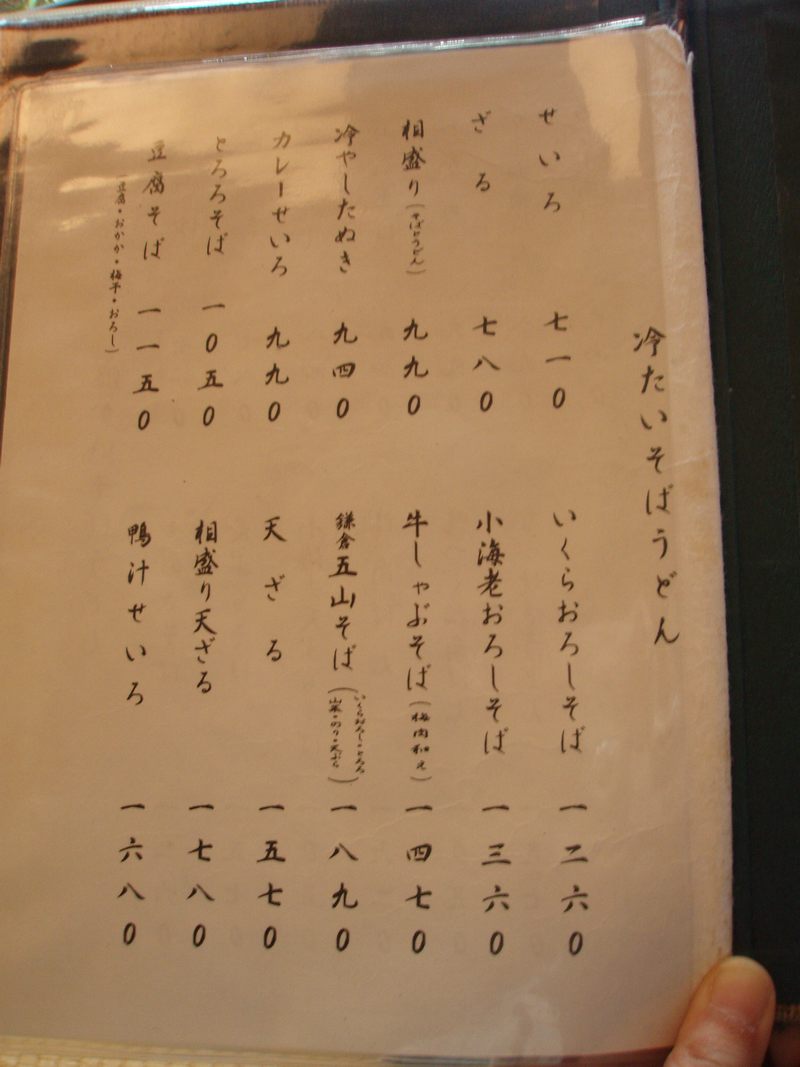 冷たいそばうどん
せいろ 七一0
ざる 七八0
相盛り(そばとうどん) 九九0
冷やしたぬき 九四0
カレーせいろ 九九0
とろろそば 一0五0
豆腐そば 一一五0
(豆腐・おかか・梅干・おろし)
いくらおろしそば 一二六0
小海老おろしそば 一三六0
牛しゃぶそば(梅肉和え) 一四七0
鎌倉五山そば(いくらおろし・とろろ 山菜・のり・天ぷら) 一八九0
天ざる 一五七0
相盛り天ざる 一七八0
鴨汁せいろ 一六八0